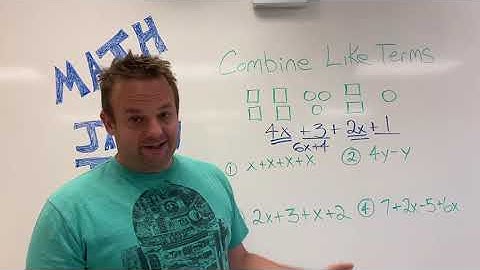 MATH
Combine Like Terms
4x + 3 + 2x + 1
6x+4
① x+x+x+x
② 4y-y
2x+3+x+2
④ 7+2x-5+6x